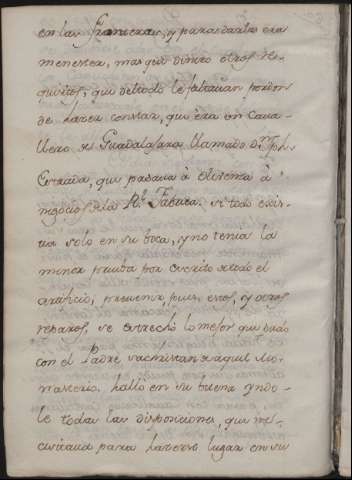 en las fronteras, y para darlas era
menester, mas que dinero otros re-
quisitos, que del todo le faltauan por don-
de hazer constar, que era un Caua-
llero de Guadalajara llamado Dn. Jph.
Estrada, que pasaua à
negocios de la Rl. Fabrica. si todo exis-
tia solo en su boca, y no tenia la
menor prueba por escrito de todo el
artificio, preuenir, pues, estos, y otros
reparos, se estrechò lo mejor que pudo
con el Padre sachristan de aquel Mo-
nasterio. hallò en su buena yndo-
le todas las disposiciones, que ne-
cesitaua para hazerse lugar en su